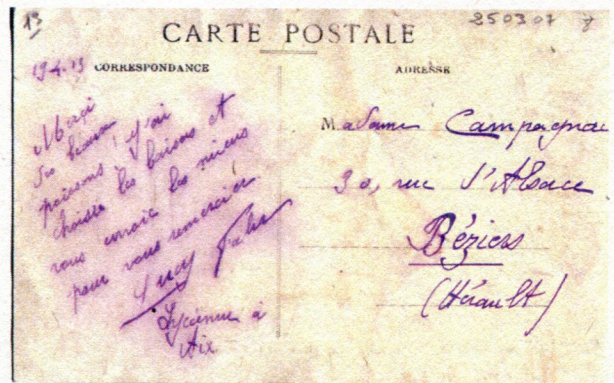 13
250307
CARTE POSTALE
19.4.13
CORRESPONDANCE
ADRESSE
Merci
des beaux
poissons, j'ai
choisie les baisons et
vous envoie les miens
pour vous remercier
Lucy
Lycéenne à
Aix
Madame Campagnac
30, rue d'Alsace
Béziers
(Hérault)